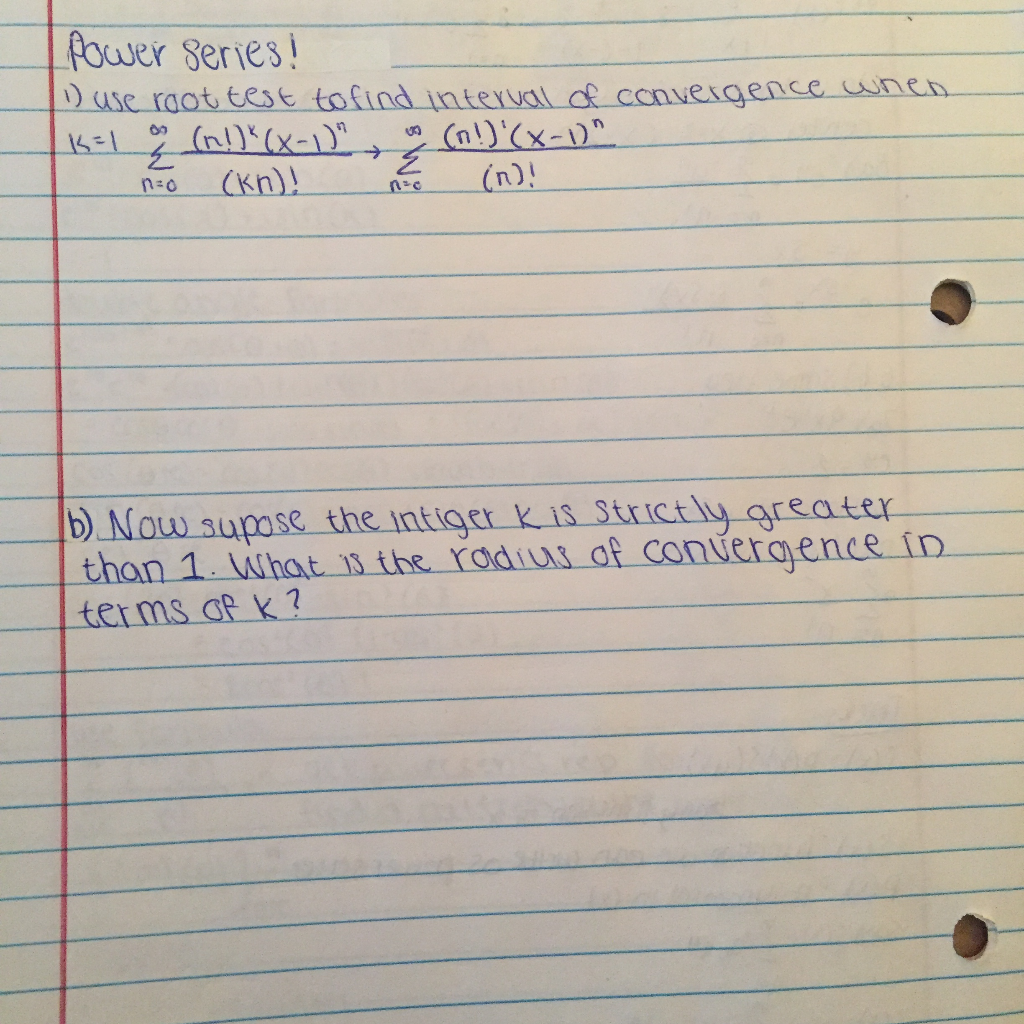 Power series!
1) use root test to find interval of convergence when
k=1 ∞ Σ n=0 (n!)^k (x-1)^n / (kn)! → ∞ Σ n=0 (n!)^1 (x-1)^n / (n)!
b) Now supose the intiger k is strictly greater
than 1. What is the radius of convergence in
terms of k?